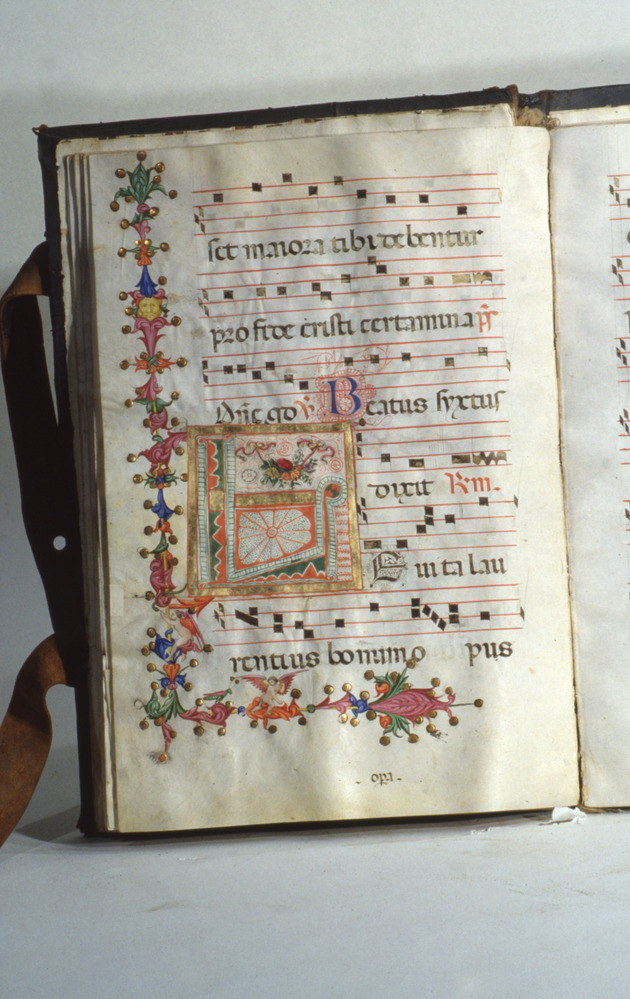 set maiora tibi debentur
pro fide cristi certamina p̃s
Beatus syxtus
dixit Rm.
Leuita lau
rentius bonum o pus
. opa .